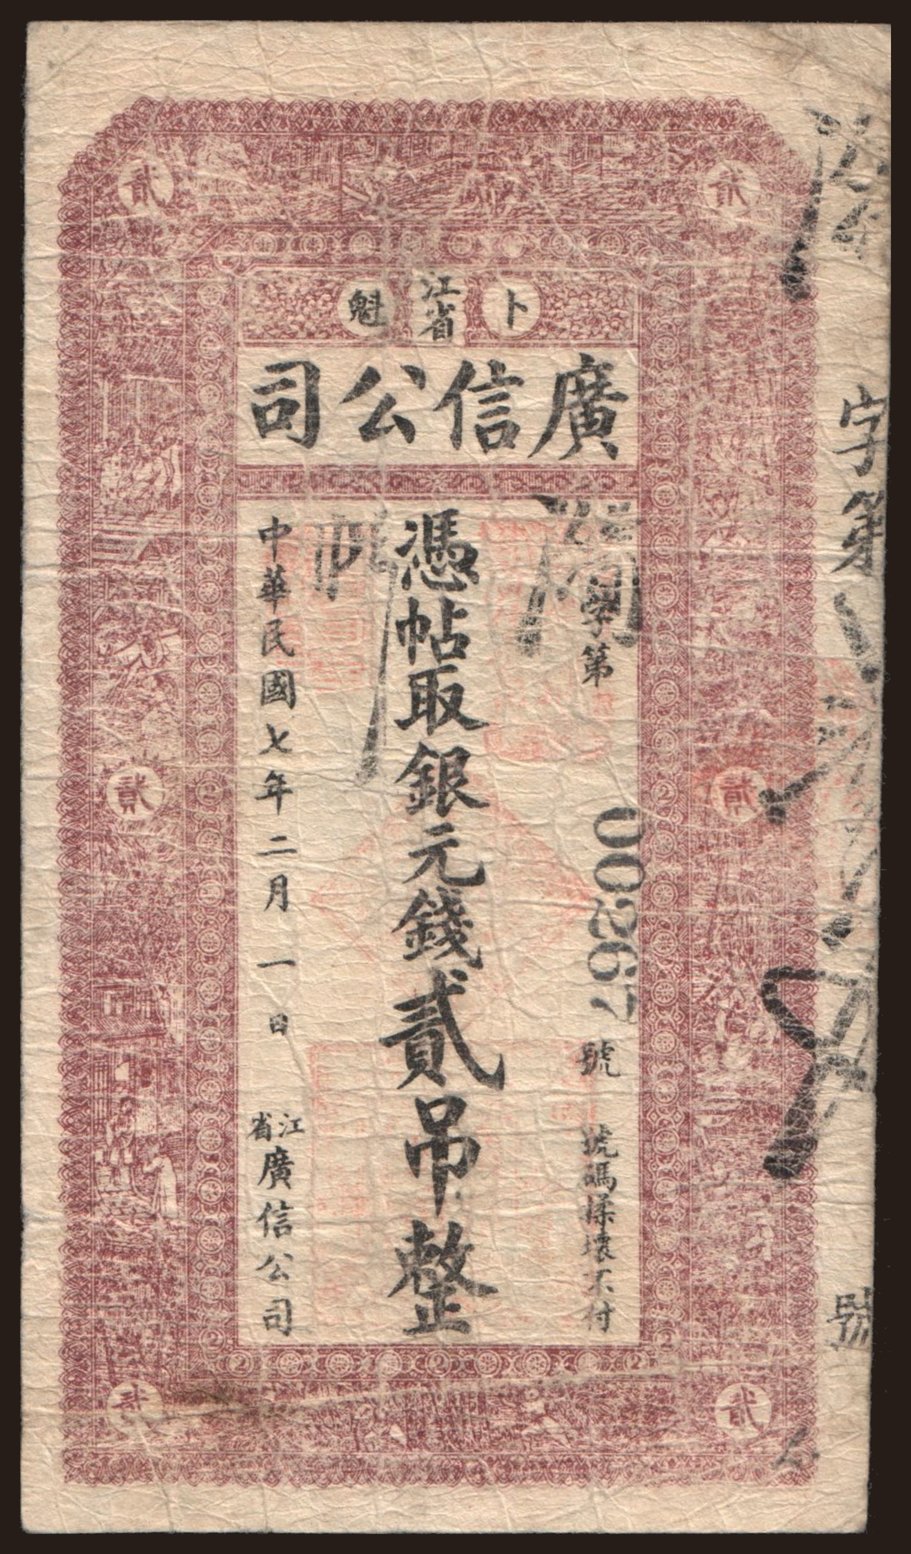 江省
卜魁
廣信公司
字第
號
字第
00267
號
號碼揉壞不付
憑帖取銀元錢貳吊整
中華民國七年二月一日
江省廣信公司
貳
貳
貳
貳
貳
貳